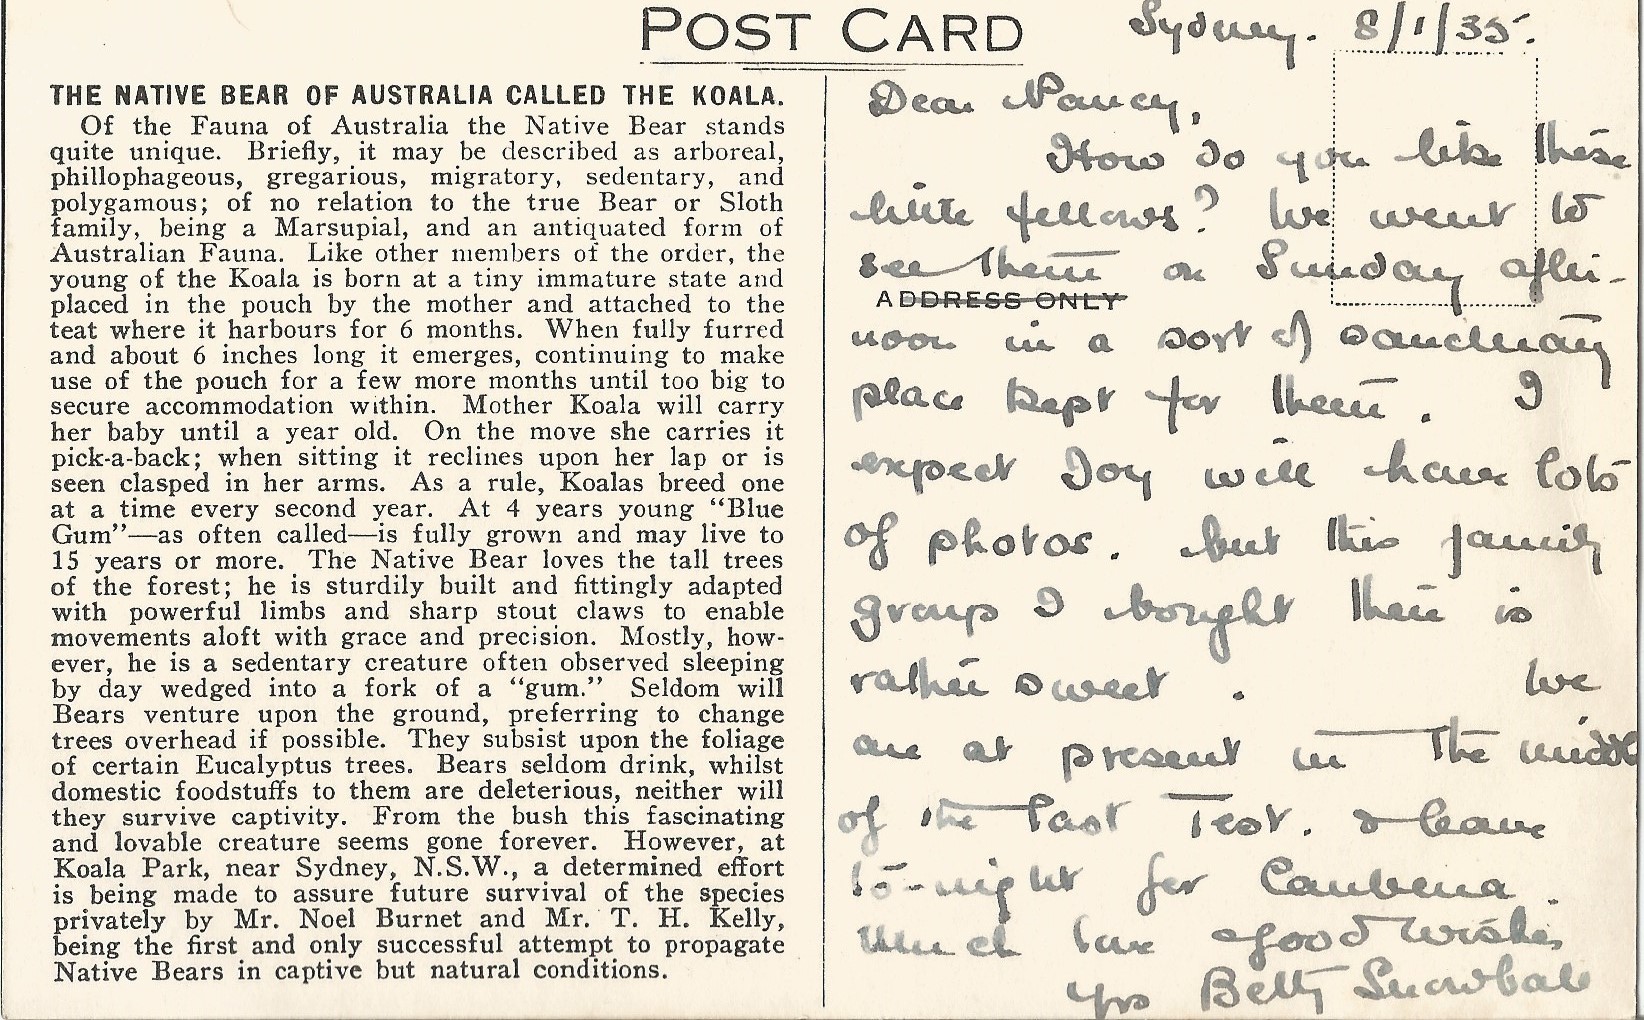 POST CARD
THE NATIVE BEAR OF AUSTRALIA CALLED THE KOALA.
Of the Fauna of Australia the Native Bear stands
quite unique. Briefly, it may be described as arboreal,
phillophageous, gregarious, migratory, sedentary, and
polygamous; of no relation to the true Bear or Sloth
family, being a Marsupial, and an antiquated form of
Australian Fauna. Like other members of the order, the
young of the Koala is born at a tiny immature state and
placed in the pouch by the mother and attached to the
teat where it harbours for 6 months. When fully furred
and about 6 inches long it emerges, continuing to make
use of the pouch for a few more months until too big to
secure accommodation within. Mother Koala will carry
her baby until a year old. On the move she carries it
pick-a-back; when sitting it reclines upon her lap or is
seen clasped in her arms. As a rule, Koalas breed one
at a time every second year. At 4 years young "Blue
Gum"—as often called—is fully grown and may live to
15 years or more. The Native Bear loves the tall trees
of the forest; he is sturdily built and fittingly adapted
with powerful limbs and sharp stout claws to enable
movements aloft with grace and precision. Mostly, how-
ever, he is a sedentary creature often observed sleeping
by day wedged into a fork of a "gum." Seldom will
Bears venture upon the ground, preferring to change
trees overhead if possible. They subsist upon the foliage
of certain Eucalyptus trees. Bears seldom drink, whilst
domestic foodstuffs to them are deleterious, neither will
they survive captivity. From the bush this fascinating
and lovable creature seems gone forever. However, at
Koala Park, near Sydney, N.S.W., a determined effort
is being made to assure future survival of the species
privately by Mr. Noel Burnet and Mr. T. H. Kelly,
being the first and only successful attempt to propagate
Native Bears in captive but natural conditions.
Sydney. 8/1/35.
Dear Nancy,
How do you like these
little fellows? We went to
see them on Sunday after-
ADDRESS ONLY
noon in a sort of sanctuary
place kept for them. I
expect Joy will have lots
of photos. but this family
group I bought there is
rather sweet. We
are at present in the middle
of the last Test. & leave
to-night for Canberra.
Much love & good wishes
Yrs Betty Snowball